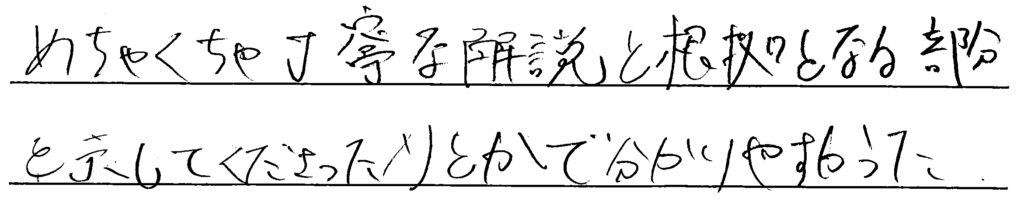 めちゃくちゃ丁寧な解説と根拠となる部分
を示してくださったりとかで分かりやすかった